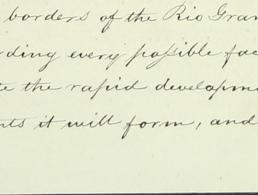 borders of the Rio Gran
rding every possible fac
te the rapid developme
nts it will form, and